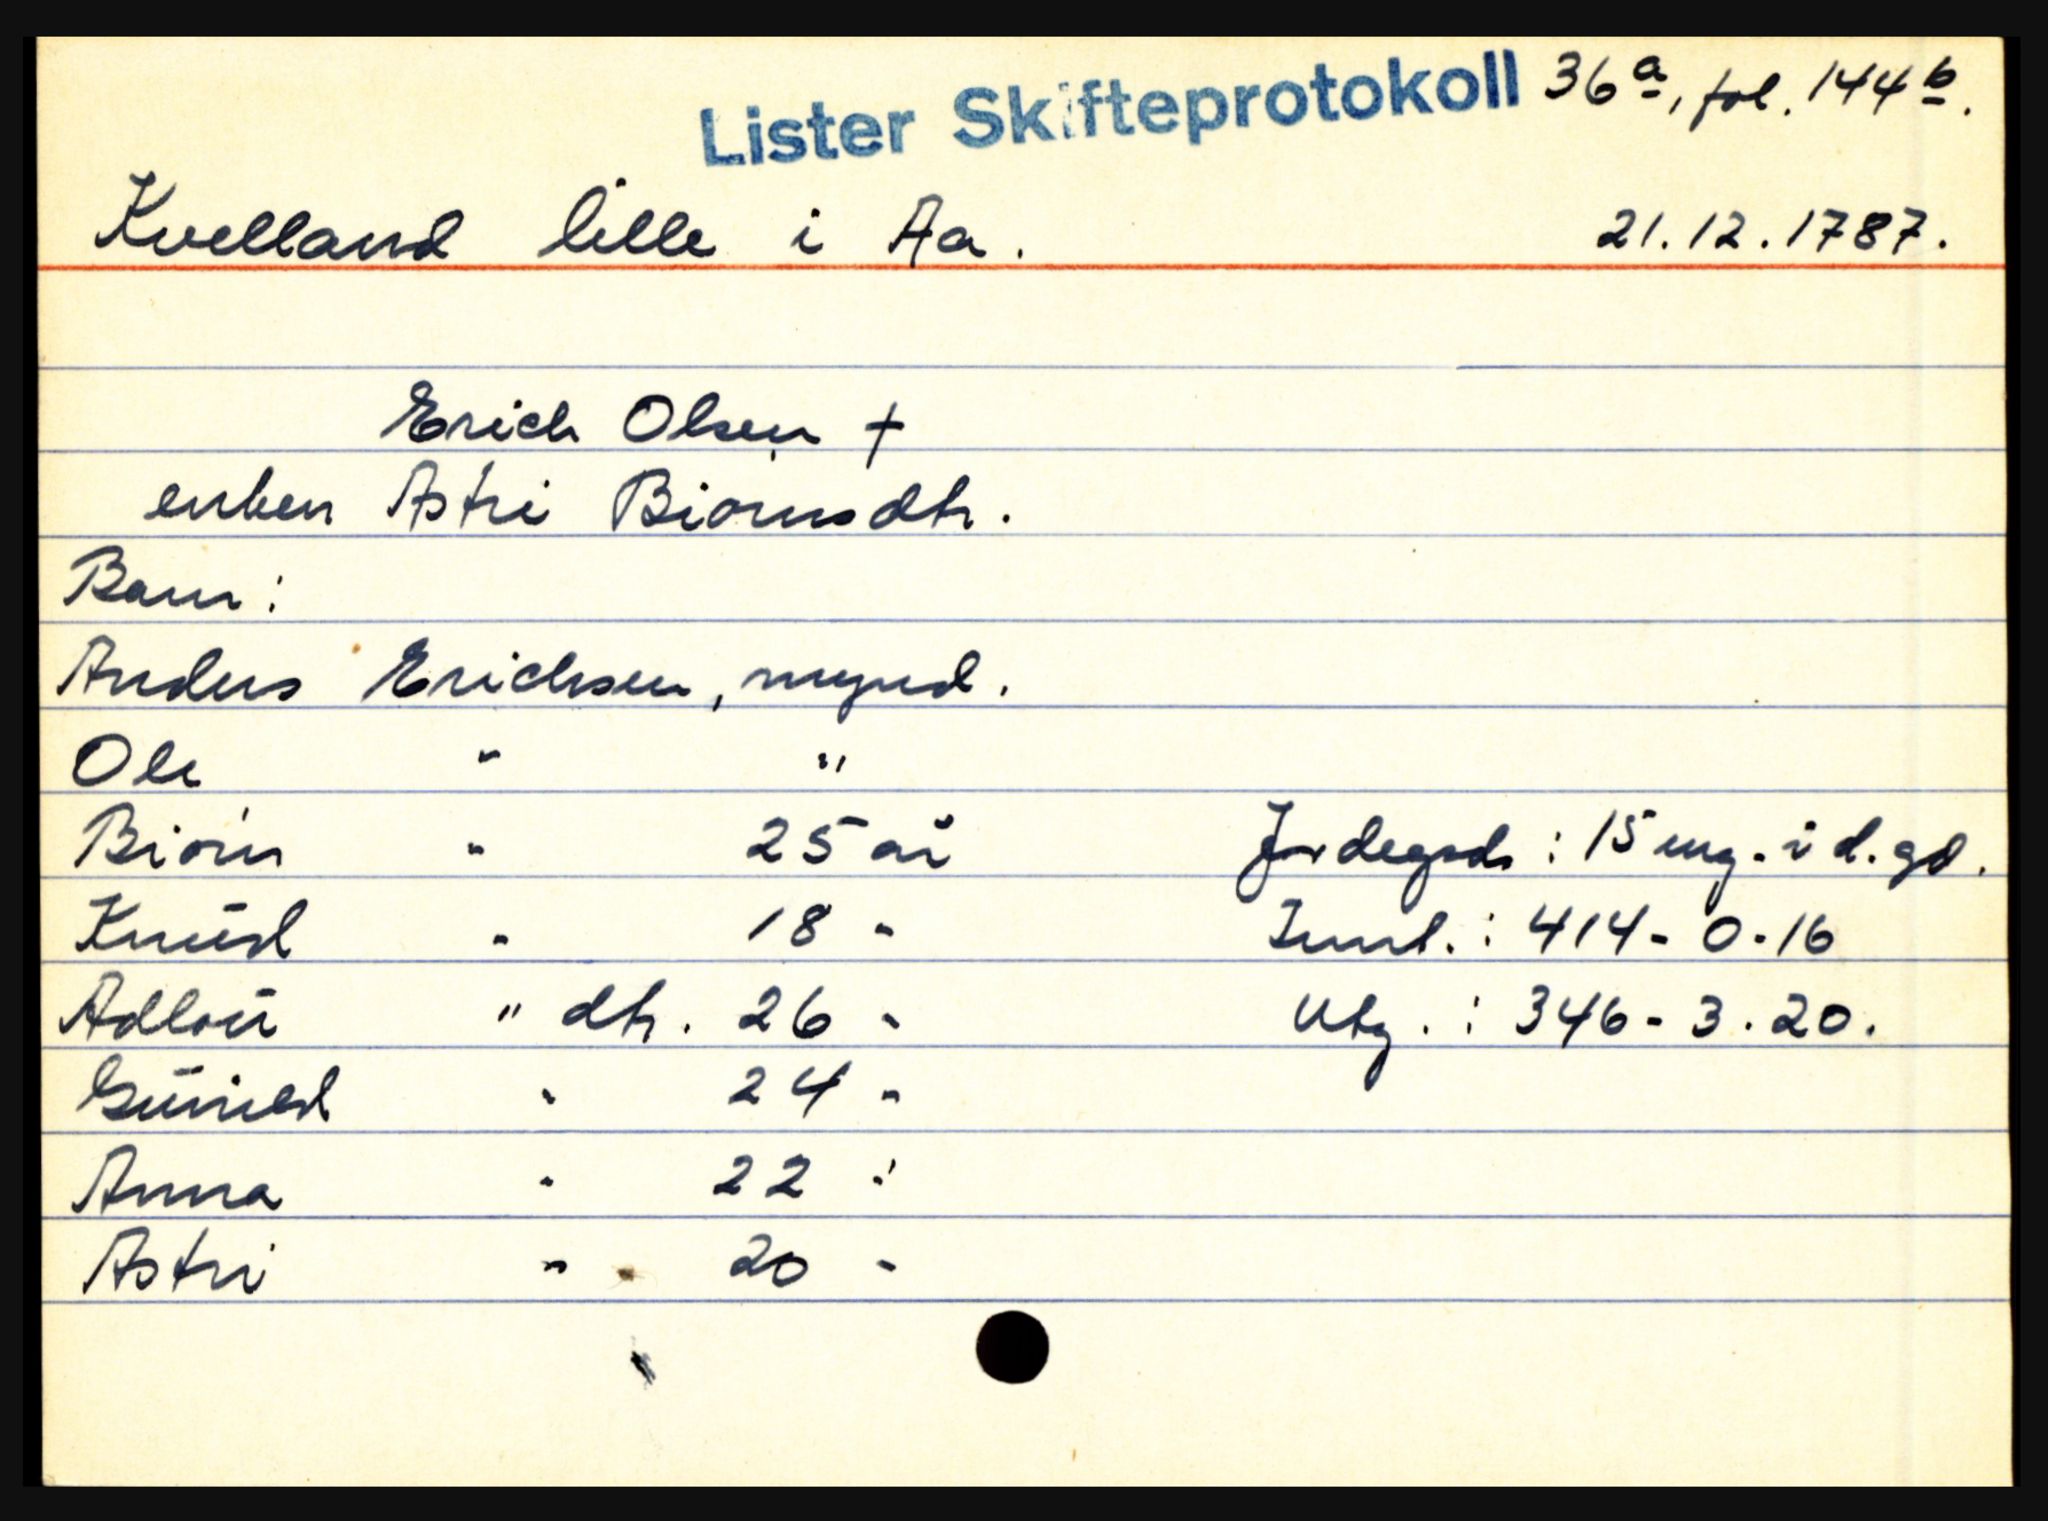 Lister Skifteprotokoll 36a, fol. 144b.
Kvelland lille i Aa. 21.12.1787.
Erich Olsen †
enken Astri Biørnsdtr.
Barn:
Anders Erichsen, mynd.
Ole " "
Biørn " 25 år
Jordegods: 15 eng. i d. gd.
Knud " 18 "
Innt.: 414 - 0 - 16
Adlou " dtr. 26 "
Utg.: 346 - 3 . 20.
Gunild " 24 "
Anna " 22 "
Astri " 20 "